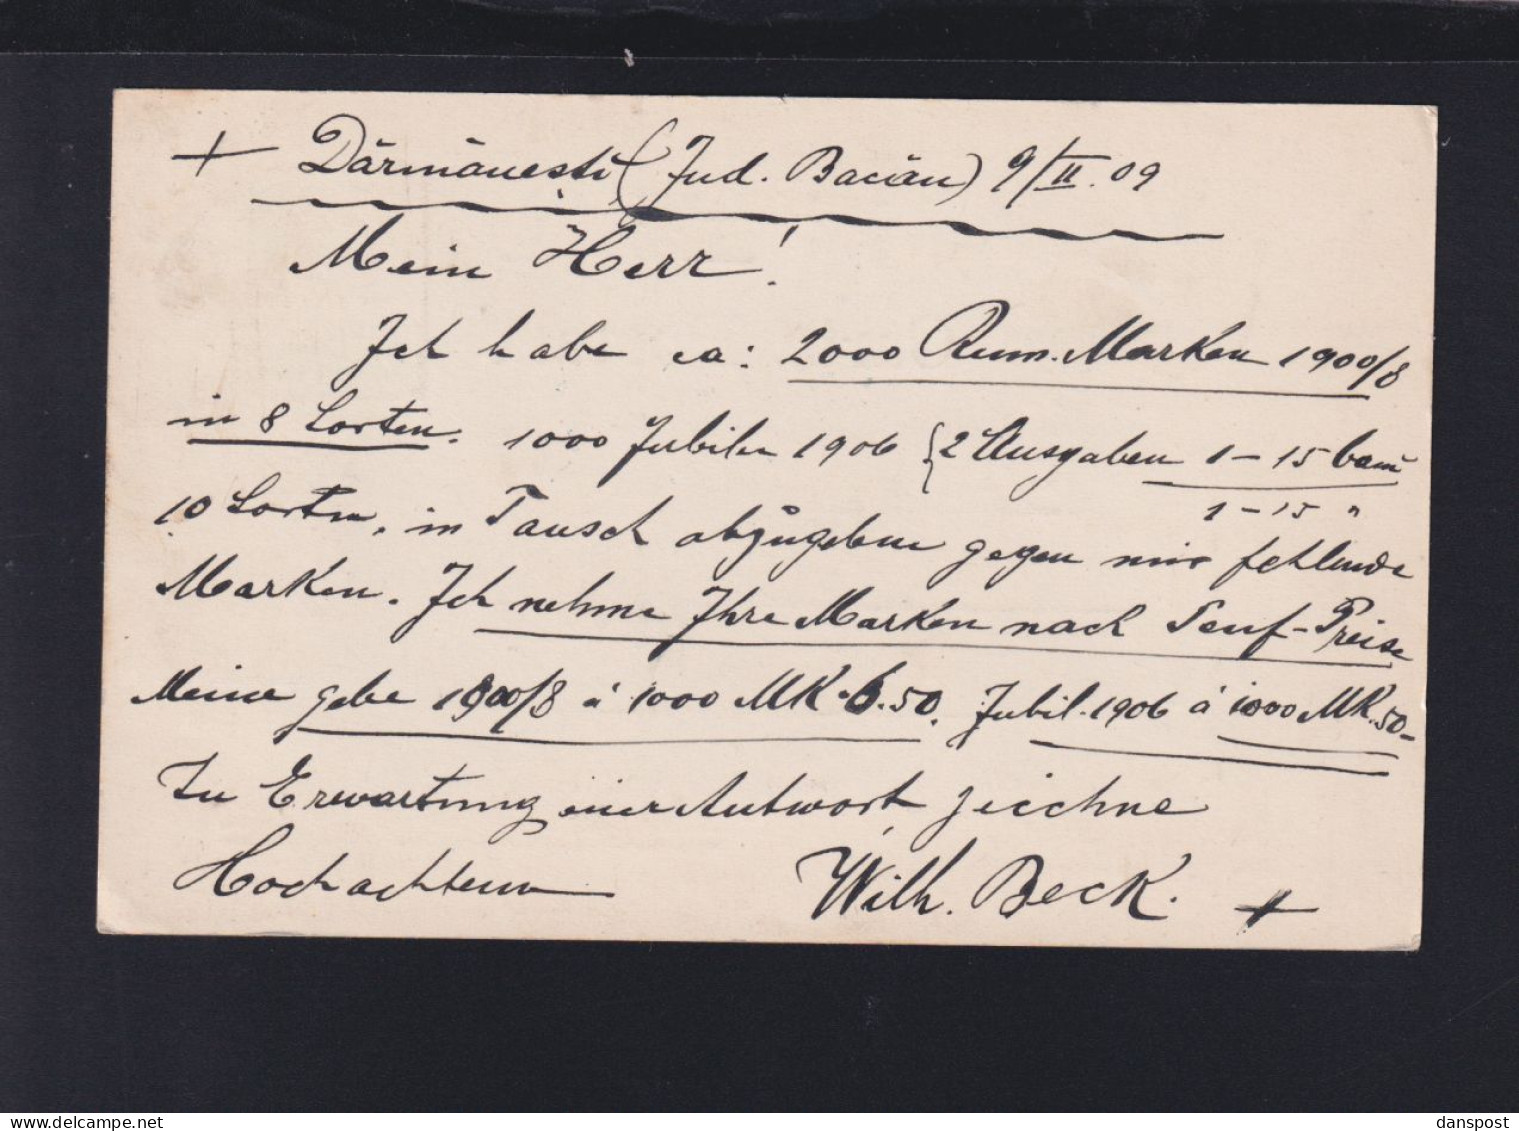 + Därmänesti (Jud. Bacäu) 9/II. 09
Mein Herr!
Ich habe ca: 2000 Rum. Marken 1900/8
in 8 Sorten. 1000 Jubiler 1906 { 2 Ausgaben 1-15 bani
1-15 "
10 Sorten, in Tausch abzugeben gegen mir fehlende
Marken. Ich nehme Ihre Marken nach Senf-Preise
Meine gebe 1900/8 á 1000 MK. 6.50. Jubil. 1906 á 1000 MK. 50-
In Erwartung einer Antwort zeichne
Hochachtend
Wilh. Beck. +
delcampe.net
danspost